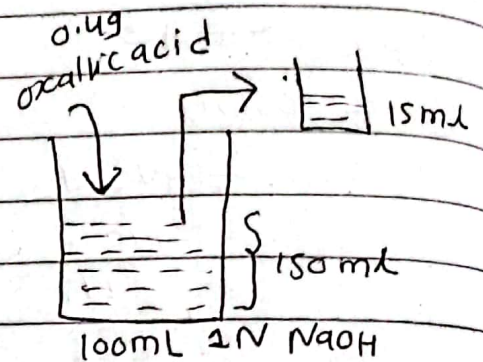 0.4g
oxallic acid
15ml
150ml
100mL 1N NaOH